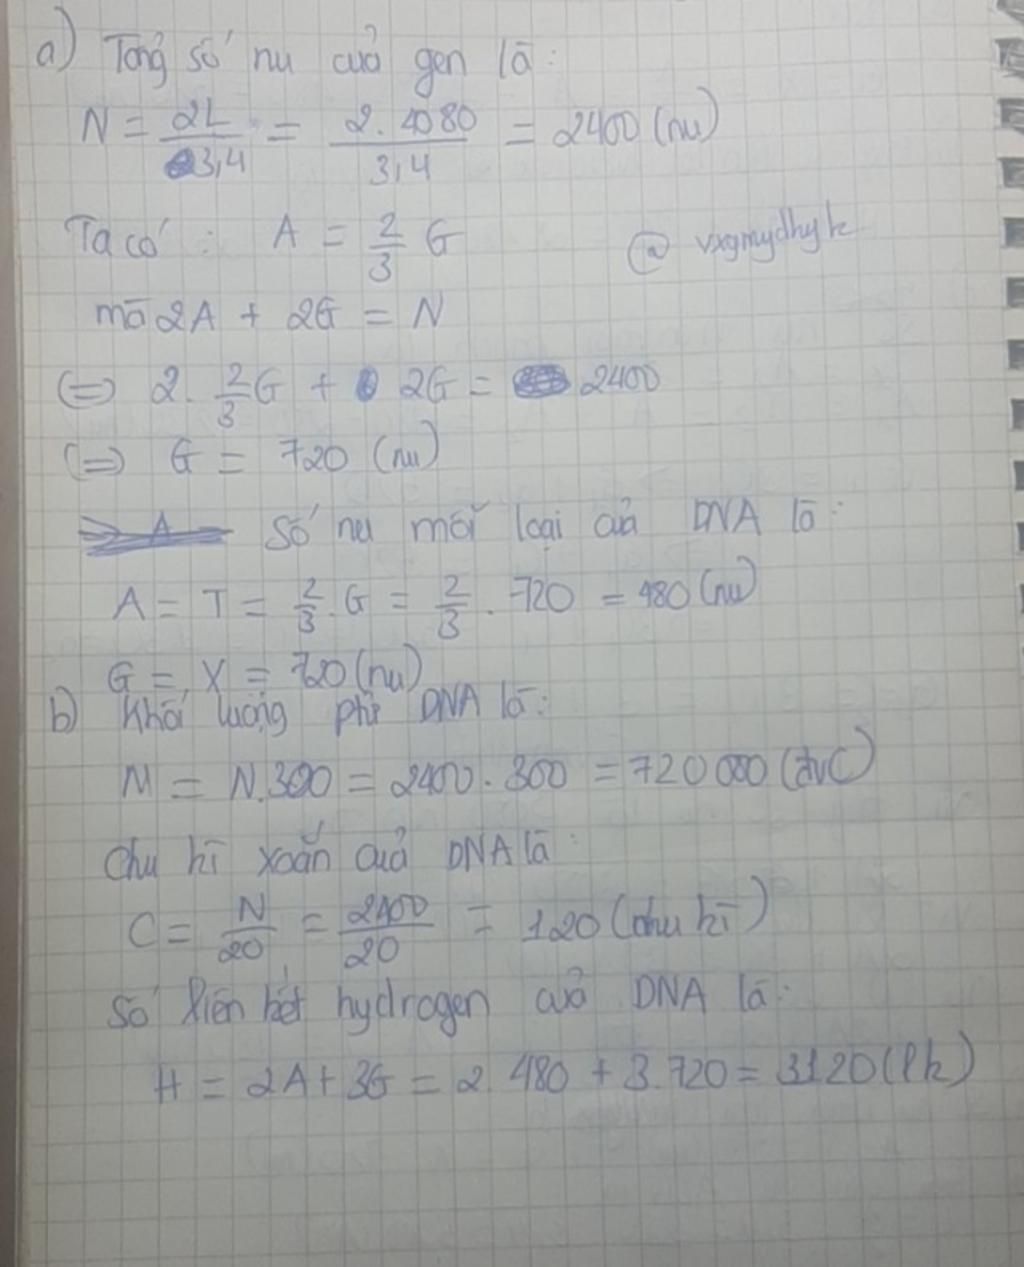 a) Tổng số nu của gen là:
N = 2L / 3,4 = 2. 4080 / 3,4 = 2400 (nu)
Ta có : A = 2/3 G
@ vxgmydhyk
mà 2A + 2G = N
(=) 2. 2/3 G + 2G = 2400
(=) G = 720 (nu)
Số nu mỗi loại của DNA là:
A = T = 2/3 . G = 2/3 . 720 = 480 (nu)
G = X = 720 (nu)
b) Khối lượng phtử DNA là:
M = N.300 = 2400. 300 = 720 000 (đvC)
Chu kì xoắn của DNA là:
C = N/20 = 2400/20 = 120 (chu kì)
Số liên kết hydrogen của DNA là:
H = 2A + 3G = 2. 480 + 3. 720 = 3120 (lk)